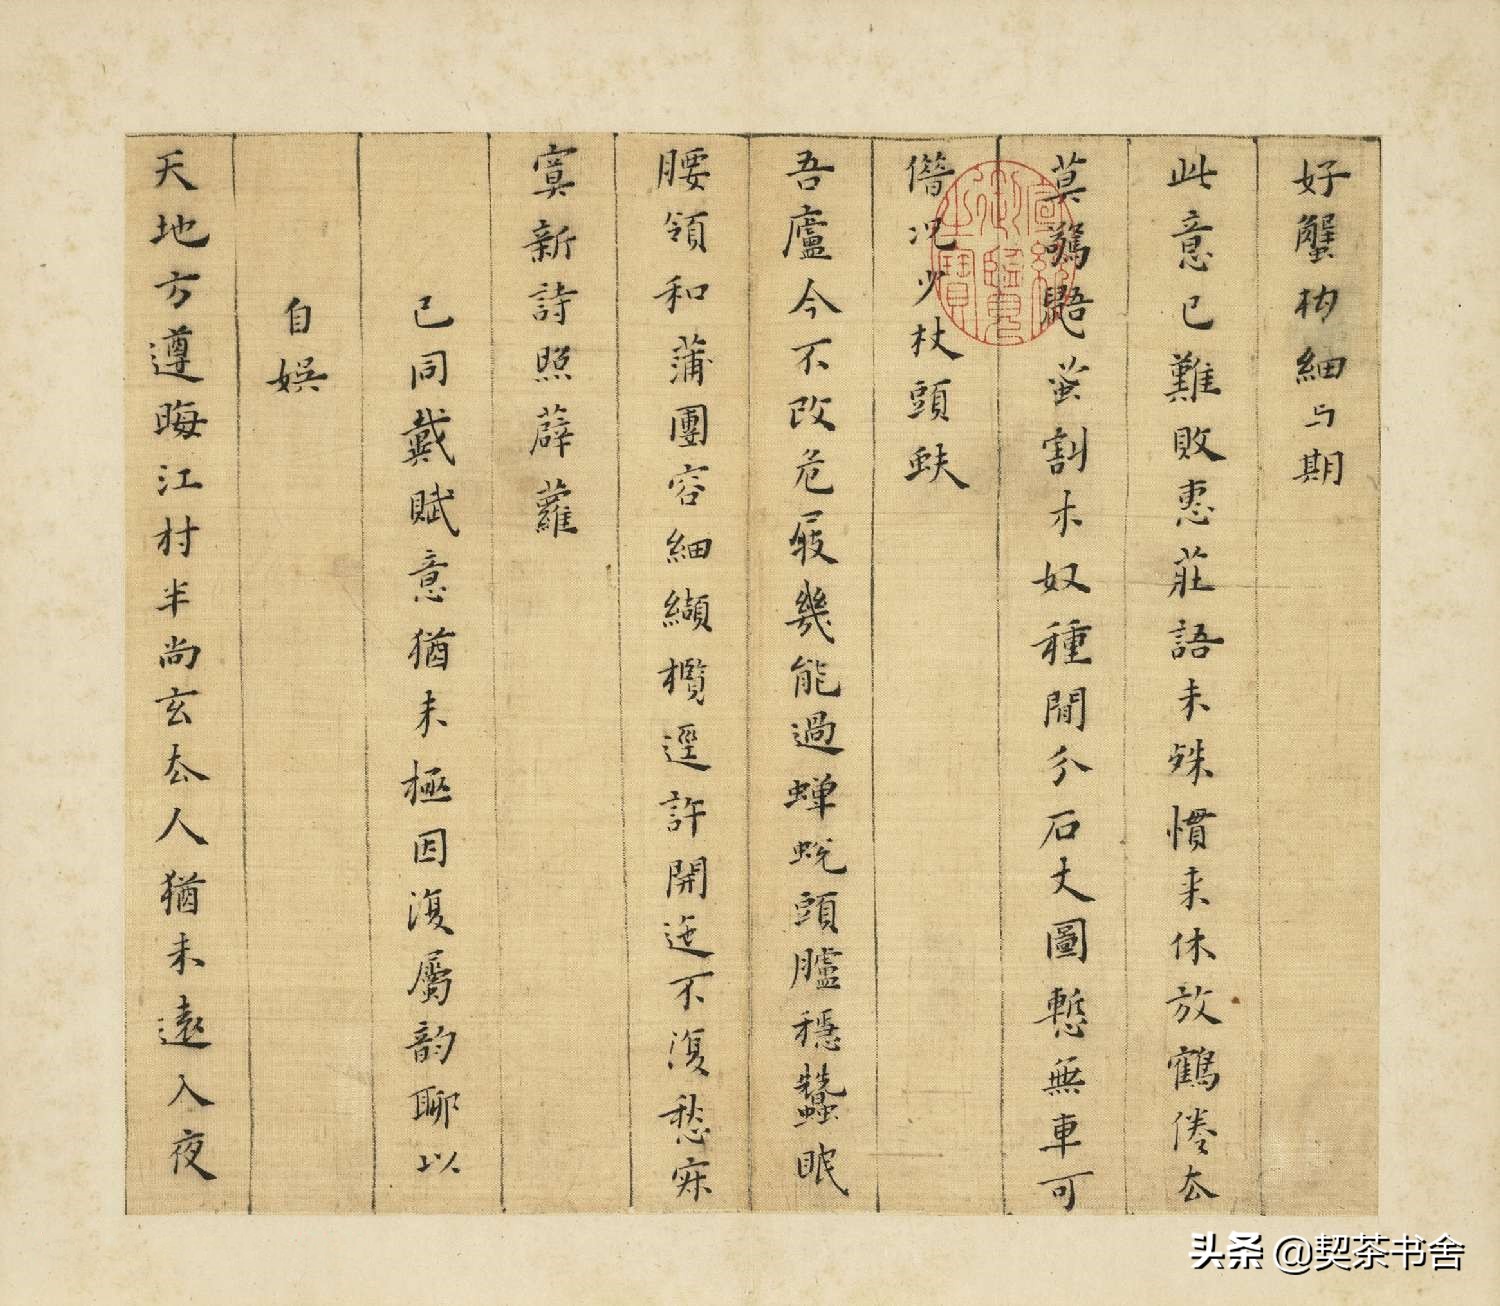 好蟹杓細与期
此意已難敗惠莊語未殊慣來休放鶴倦去
莫驚鼯蛍割木奴種閒分石丈圖慙無車可
僭况少杖頭蚨
吾廬今不改危屐幾能過蟬蛻頭臚穩蠶眠
腰領和蒲團容細纈欖逕許開迤不復愁寐
寞新詩照薜蘿
已同戴賦意猶未極因復屬韵聊以
自娛
天地方遵晦江村半尚玄去人猶未遠入夜
宣統御覽之寶
头条 @契茶书舍